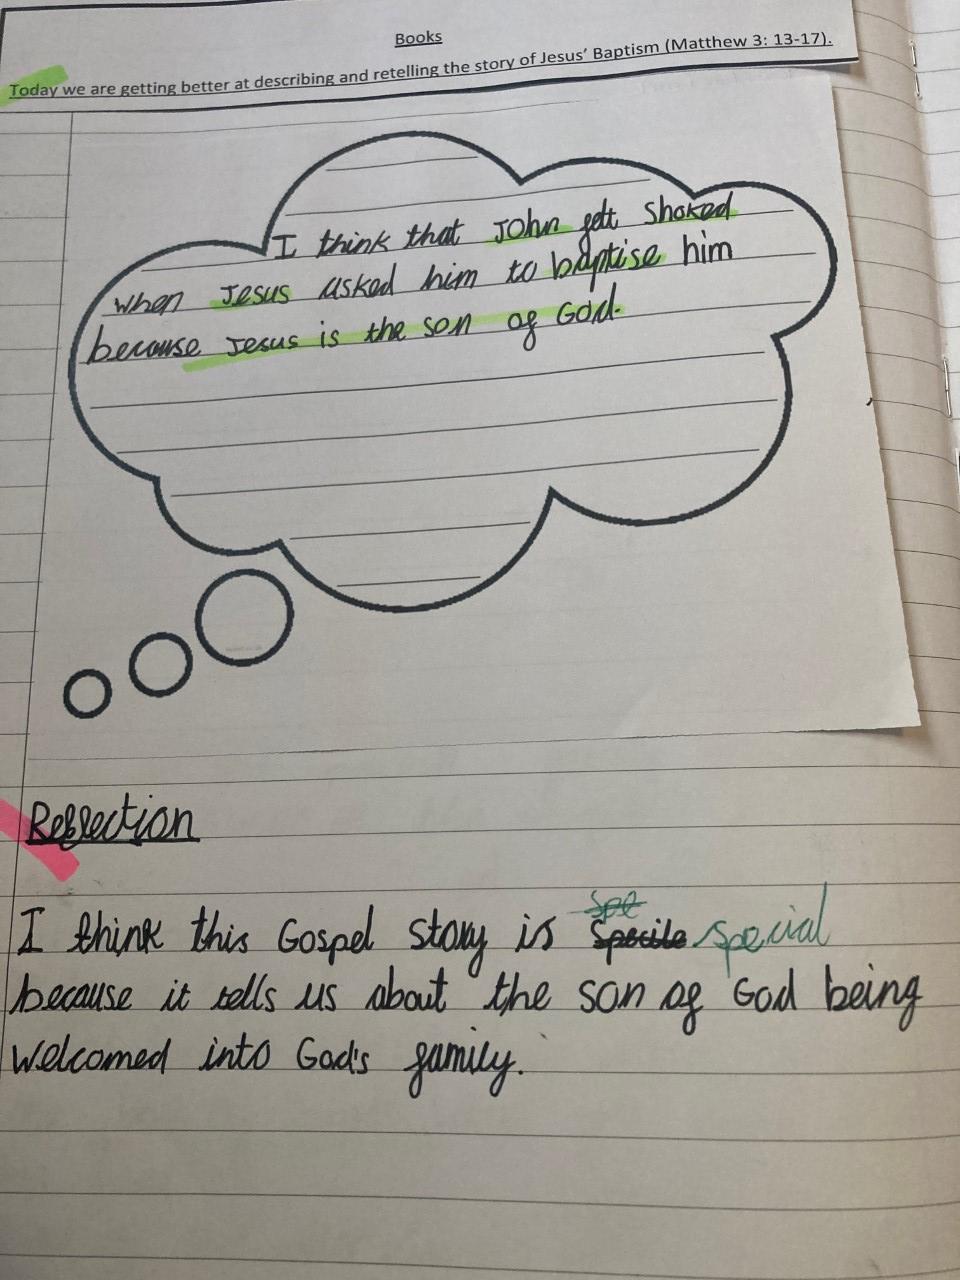 Books
Today we are getting better at describing and retelling the story of Jesus' Baptism (Matthew 3: 13-17).
I think that John felt shoked
when Jesus asked him to baptise him
because Jesus is the son of God.
Reflection
I think this Gospel story is Specile Spe special
because it tells us about the son of God being
welcomed into God's family.